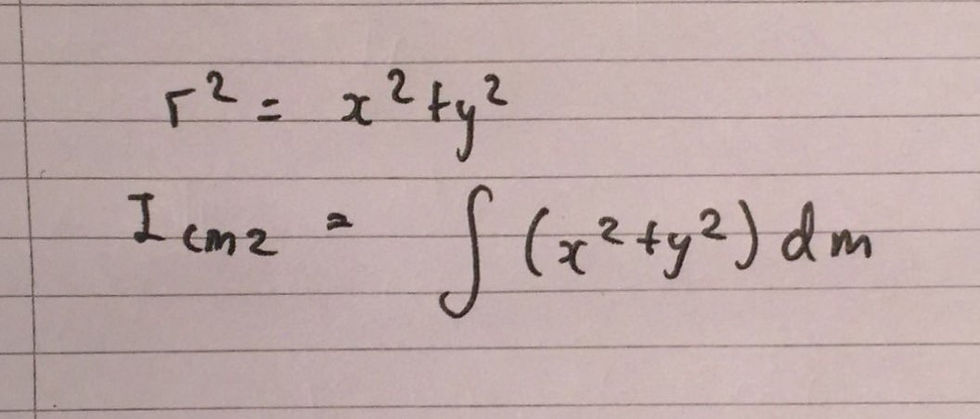 r² = x² + y²
I cm2 = ∫ (x² + y²) dm